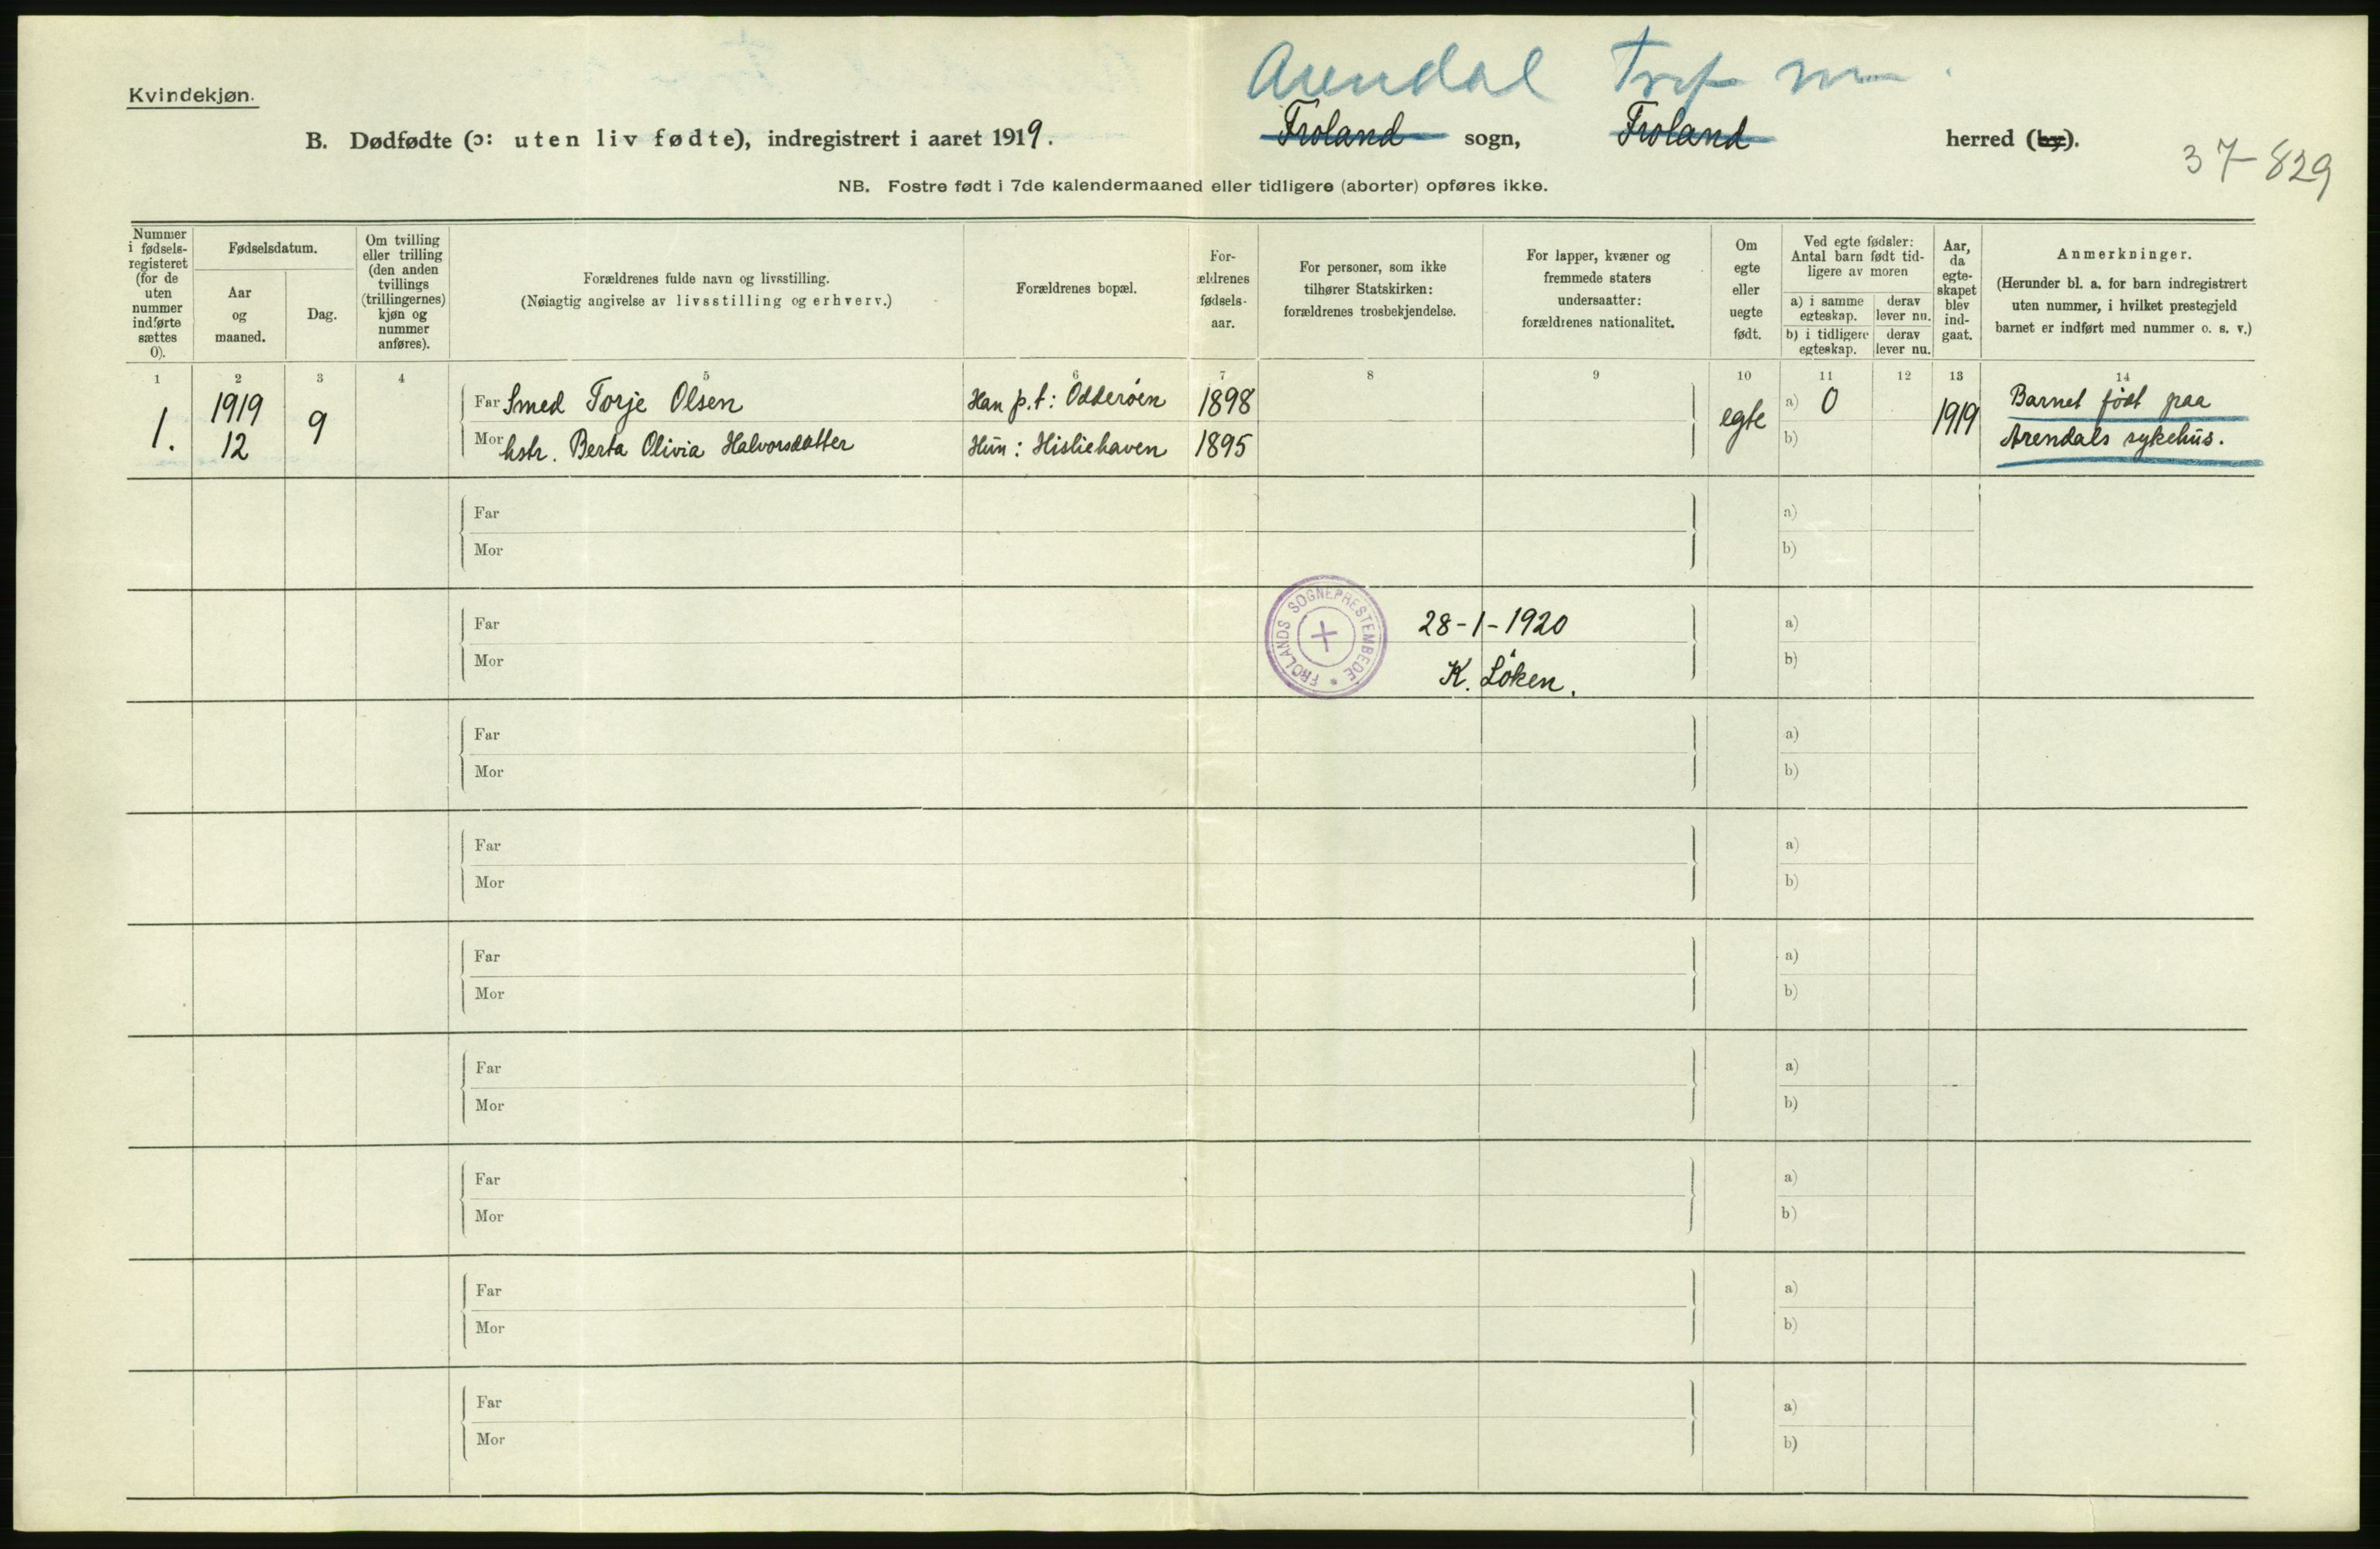 Kvindekjøn.
Arendal
B. Dødfødte (ɔ: uten liv fødte), indregistrert i aaret 1919. Froland sogn, Froland herred (by).
37-829
NB. Fostre født i 7de kalendermaaned eller tidligere (aborter) opføres ikke.
Nummer
i fødsels-
registeret
(for de
uten
nummer
indførte
sættes
0).
Fødselsdatum.
Aar
og
maaned.
Dag.
Om tvilling
eller trilling
(den anden
tvillings
(trillingernes)
kjøn og
nummer
anføres).
Forældrenes fulde navn og livsstilling.
(Nøiagtig angivelse av livsstilling og erhverv.)
Forældrenes bopæl.
For-
ældrenes
fødsels-
aar.
For personer, som ikke
tilhører Statskirken:
forældrenes trosbekjendelse.
For lapper, kvæner og
fremmede staters
undersaatter:
forældrenes nationalitet.
Om
egte
eller
uegte
født.
Ved egte fødsler:
Antal barn født tid-
ligere av moren
a) i samme
egteskap.
derav
lever nu.
b) i tidligere
egteskap.
derav
lever nu.
Aar,
da
egte-
skapet
blev
ind-
gaat.
Anmerkninger.
(Herunder bl. a. for barn indregistrert
uten nummer, i hvilket prestegjeld
barnet er indført med nummer o. s. v.)
1 2 3 4 5 6 7 8 9 10 11 12 13 14
1.
1919
12
9
Far Smed Torje Olsen
Mor hstr. Berta Olivia Halvorsdatter
Han p.t: Odderøen
Hun: Hisliehaven
1898
1895
egte
a) 0
b)
1919
Barnet født paa
Arendals sykehus.
Far a)
Mor b)
Far a)
Mor b)
FROLANDS SOGNEPRESTEMBEDE *
28-1-1920
K. Løken.
Far a)
Mor b)
Far a)
Mor b)
Far a)
Mor b)
Far a)
Mor b)
Far a)
Mor b)
Far a)
Mor b)
Far a)
Mor b)